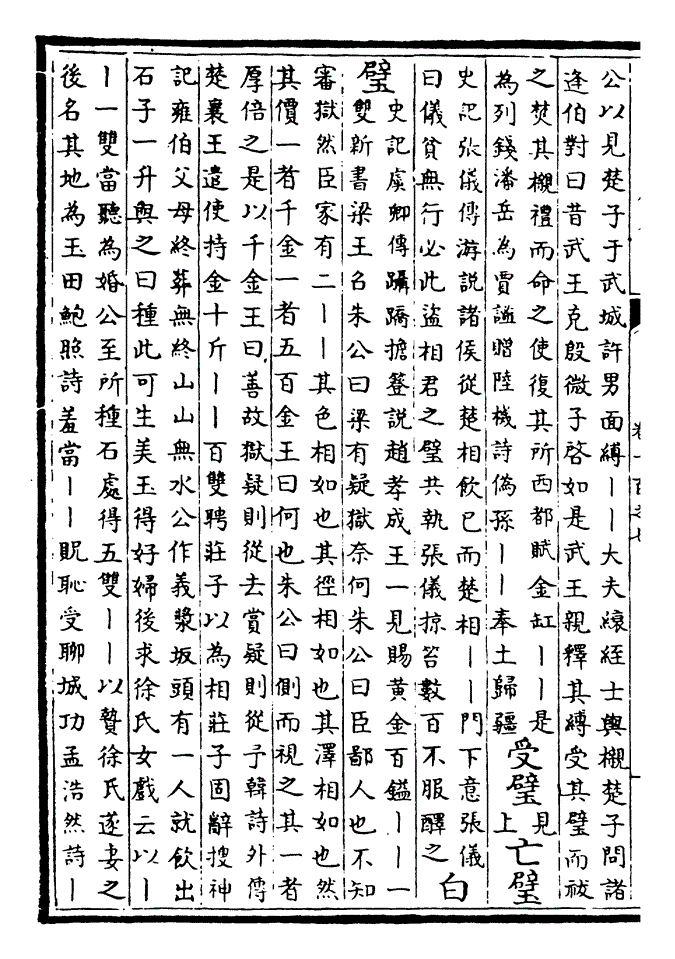 公以見楚子于武城許男面縛丨丨大夫縗絰士輿櫬楚子問諸
逢伯對曰昔武王克殷微子啓如是武王親釋其縛受其璧而祓
之焚其櫬禮而命之使復其所西都賦金缸丨丨是
為列錢潘岳為賈謐贈陸機詩偽孫丨丨奉土歸疆
受璧
見
上
亡璧
史記張儀傳游說諸侯從楚相飲已而楚相丨丨門下意張儀
曰儀貧無行必此盜相君之璧共執張儀掠笞數百不服醳之
白
璧
史記虞卿傳躡蹻擔簦說趙孝成王一見賜黃金百鎰丨丨一
雙新書梁王召朱公曰梁有疑獄奈何朱公曰臣鄙人也不知
審獄然臣家有二丨丨其色相如也其徑相如也其澤相如也然
其價一者千金一者五百金王曰何也朱公曰側而視之其一者
厚倍之是以千金王曰善故獄疑則從去賞疑則從予韓詩外傳
楚襄王遣使持金十斤丨丨百雙聘莊子以為相莊子固辭搜神
記雍伯父母終葬無終山山無水公作義漿坂頭有一人就飲出
石子一升與之曰種此可生美玉得好婦後求徐氏女戲云以丨
丨一雙當聽為婚公至所種石處得五雙丨丨以贄徐氏遂妻之
後名其地為玉田鮑照詩羞當丨丨貺恥受聊城功孟浩然詩丨